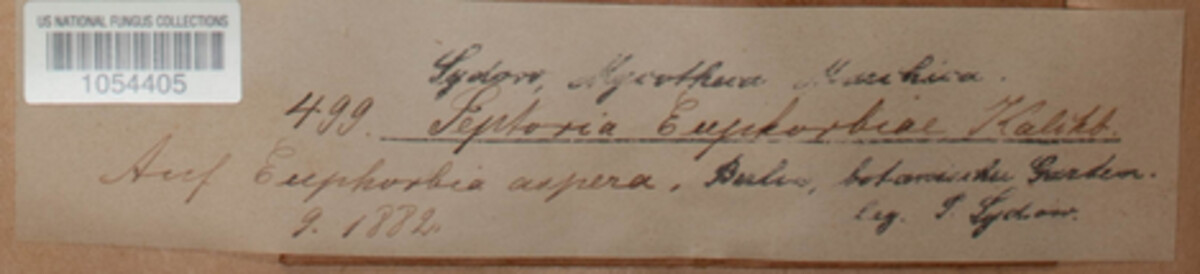 US NATIONAL FUNGUS COLLECTIONS
1054405
Sydow, Mycotheca Marchica.
499. Septoria Euphorbiae Kalchb.
Auf Euphorbia aspera. Berlin, botanischer Garten.
9. 1882. leg. P. Sydow.